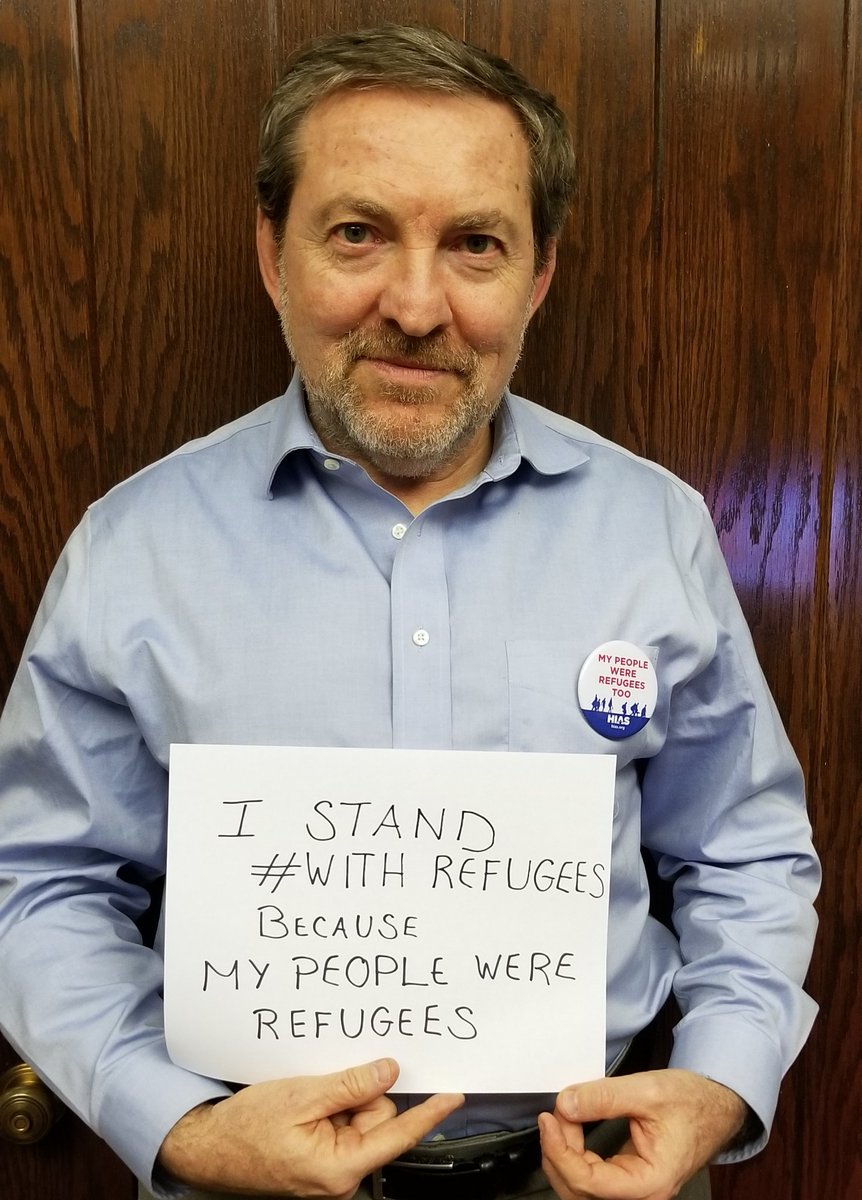 MY PEOPLE
WERE
REFUGEES
TOO
HIAS
hias.org
I STAND
#WITH REFUGEES
BECAUSE
MY PEOPLE WERE
REFUGEES